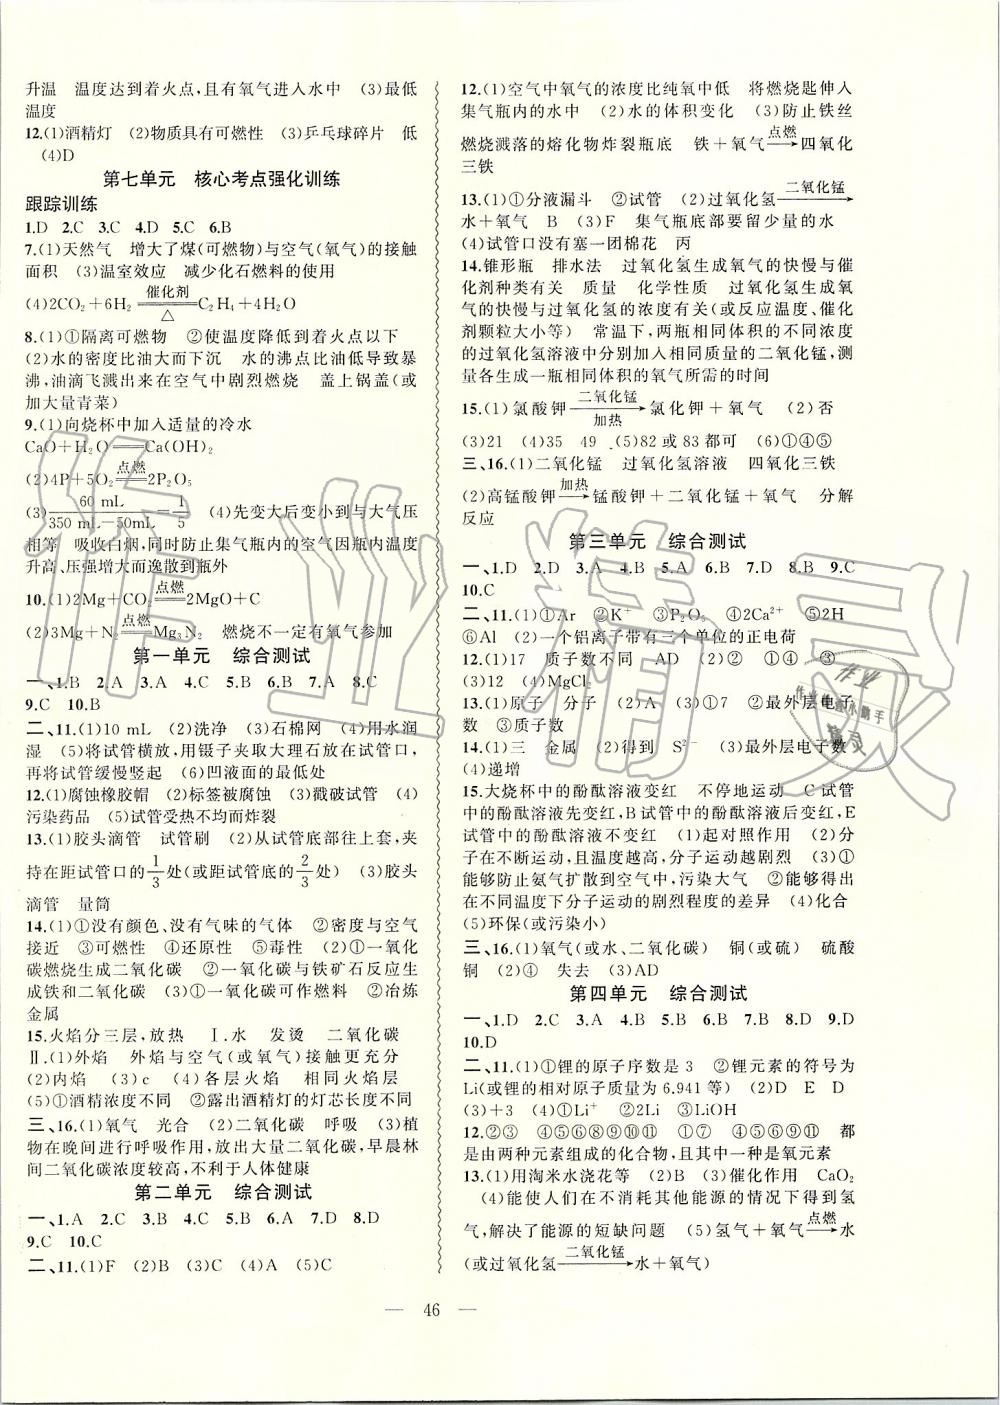 升温　温度达到着火点,且有氧气进入水中　(3)最低
温度
12.(1)酒精灯　(2)物质具有可燃性　(3)乒乓球碎片　低
(4)D
第七单元　核心考点强化训练
跟踪训练
1.D　2.C　3.C　4.D　5.C　6.B
7.(1)天然气　增大了煤(可燃物)与空气(氧气)的接触
面积　(3)温室效应　减少化石燃料的使用
(4)2CO₂＋6H₂ ══催化剂/△══ C₂H₄＋4H₂O
8.(1)①隔离可燃物　②使温度降低到着火点以下
(2)水的密度比油大而下沉　水的沸点比油低导致暴
沸,油滴飞溅出来在空气中剧烈燃烧　盖上锅盖(或
加大量青菜)
9.(1)向烧杯中加入适量的冷水
CaO＋H₂O══Ca(OH)₂
(2)4P＋5O₂ ══点燃══ 2P₂O₅
(3) 60 mL/(350 mL－50mL)＝1/5　(4)先变大后变小到与大气压
相等　吸收白烟,同时防止集气瓶内的空气因瓶内温度
升高、压强增大而逸散到瓶外
10.(1)2Mg＋CO₂ ══点燃══ 2MgO＋C
(2)3Mg＋N₂ ══点燃══ Mg₃N₂　燃烧不一定有氧气参加
第一单元　综合测试
一、1.B　2.A　3.A　4.A　5.D　6.B　7.A　8.C
9.C　10.B
二、11.(1)10 mL　(2)洗净　(3)石棉网　(4)用水润
湿　(5)将试管横放,用镊子夹取大理石放在试管口,
再将试管缓慢竖起　(6)凹液面的最低处
12.(1)腐蚀橡胶帽　(2)标签被腐蚀　(3)戳破试管　(4)
污染药品　(5)试管受热不均而炸裂
13.(1)胶头滴管　试管刷　(2)从试管底部往上套,夹
持在距试管口的1/3处(或距试管底的2/3处)　(3)胶头
滴管　量筒
14.(1)①没有颜色、没有气味的气体　②密度与空气
接近　③可燃性　④还原性　⑤毒性　(2)①一氧化
碳燃烧生成二氧化碳　②一氧化碳与铁矿石反应生
成铁和二氧化碳　(3)①一氧化碳可作燃料　②冶炼
金属
15.火焰分三层,放热　Ⅰ.水　发烫　二氧化碳
Ⅱ.(1)外焰　外焰与空气(或氧气)接触更充分
(2)内焰　(3)c　(4)各层火焰　相同火焰层
(5)①酒精浓度不同　②露出酒精灯的灯芯长度不同
三、16.(1)氧气　光合　(2)二氧化碳　呼吸　(3)植
物在晚间进行呼吸作用,放出大量二氧化碳,早晨林
间二氧化碳浓度较高,不利于人体健康
第二单元　综合测试
一、1.A　2.C　3.B　4.C　5.D　6.A　7.D　8.D
9.C　10.C
二、11.(1)F　(2)B　(3)C　(4)A　(5)C
12.(1)空气中氧气的浓度比纯氧中低　将燃烧匙伸入
集气瓶内的水中　(2)水的体积变化　(3)防止铁丝
燃烧溅落的熔化物炸裂瓶底　铁＋氧气 ─点燃→ 四氧化
三铁
13.(1)①分液漏斗　②试管　(2)过氧化氢 ─二氧化锰→
水＋氧气　B　(3)F　集气瓶底部要留少量的水
(4)试管口没有塞一团棉花　丙
14.锥形瓶　排水法　过氧化氢生成氧气的快慢与催
化剂种类有关　质量　化学性质　过氧化氢生成氧
气的快慢与过氧化氢的浓度有关(或反应温度、催化
剂颗粒大小等)　常温下,两瓶相同体积的不同浓度
的过氧化氢溶液中分别加入相同质量的二氧化锰,测
量各生成一瓶相同体积的氧气所需的时间
15.(1)氯酸钾 ─二氧化锰/加热→ 氯化钾＋氧气　(2)否
(3)21　(4)35　49　(5)82或83都可　(6)①④⑤
三、16.(1)二氧化锰　过氧化氢溶液　四氧化三铁
(2)高锰酸钾 ─加热→ 锰酸钾＋二氧化锰＋氧气　分解
反应
第三单元　综合测试
一、1.D　2.D　3.A　4.B　5.A　6.B　7.D　8.B　9.C
10.C
二、11.(1)①Ar　②K⁺　③P₂O₅　④2Ca²⁺　⑤2H
⑥Al　(2)一个铝离子带有三个单位的正电荷
12.(1)17　质子数不同　AD　(2)②　①④　③
(3)12　(4)MgCl₂
13.(1)原子　分子　(2)A　(3)①7　②最外层电子
数　③质子数
14.(1)三　金属　(2)得到　S²⁻　(3)最外层电子数
(4)递增
15.大烧杯中的酚酞溶液变红　不停地运动　C试管
中的酚酞溶液先变红,B试管中的酚酞溶液后变红,E
试管中的酚酞溶液不变红　(1)起对照作用　(2)分
子在不断运动,且温度越高,分子运动越剧烈　(3)①
能够防止氨气扩散到空气中,污染大气　②能够得出
在不同温度下分子运动的剧烈程度的差异　(4)化合
(5)环保(或污染小)
三、16.(1)氧气(或水、二氧化碳)　铜(或硫)　硫酸
铜　(2)④　失去　(3)AD
第四单元　综合测试
一、1.D　2.C　3.A　4.B　5.B　6.B　7.D　8.D　9.D
10.D
二、11.(1)①锂的原子序数是3　②锂元素的符号为
Li(或锂的相对原子质量为6.941等)　(2)D　E　D
(3)＋3　(4)①Li⁺　②2Li　③LiOH
12.②③　④⑤⑥⑧⑨⑩⑪　①⑦　④⑤⑥⑨⑪　都
是由两种元素组成的化合物,且其中一种是氧元素
13.(1)用淘米水浇花等　(2)B　(3)催化作用　CaO₂
(4)能使人们在不消耗其他能源的情况下得到氢
气,解决了能源的短缺问题　(5)氢气＋氧气 ─点燃→ 水
(或过氧化氢 ─二氧化锰→ 水＋氧气)
— 46 —
作业精灵